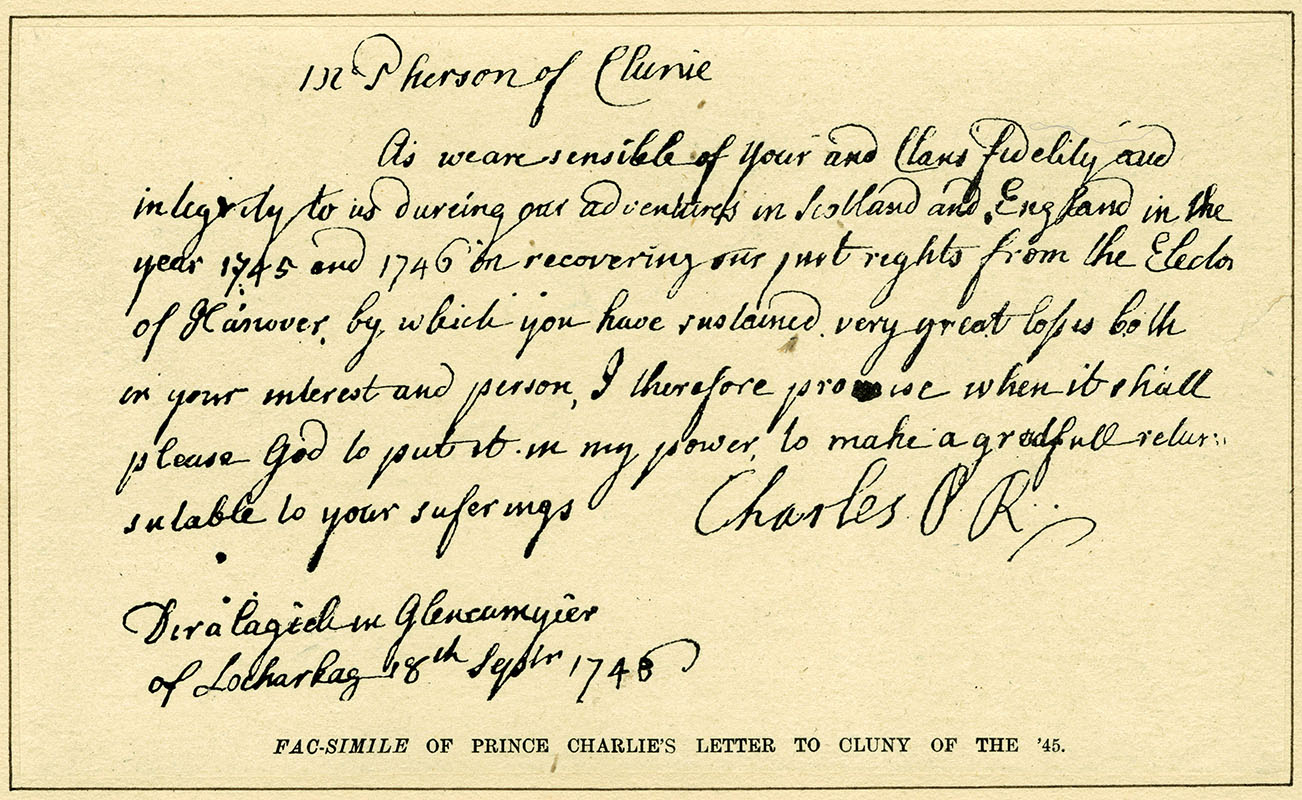 McPherson of Clunie
As we are sensible of your and Clans fidelity and
integrity to us dureing our adventures in Scotland and England in the
year 1745 and 1746 in recovering our just rights from the Elector
of Hanover, by which you have sustained very great losses both
in your interest and person, I therefore promise when it shall
please God to put it in my power, to make a gratfull return
sutable to your suferings
Charles P R.
Diralagich in Glencamyier
of Locharkag 18th Septr 1746
FAC-SIMILE OF PRINCE CHARLIE'S LETTER TO CLUNY OF THE '45.